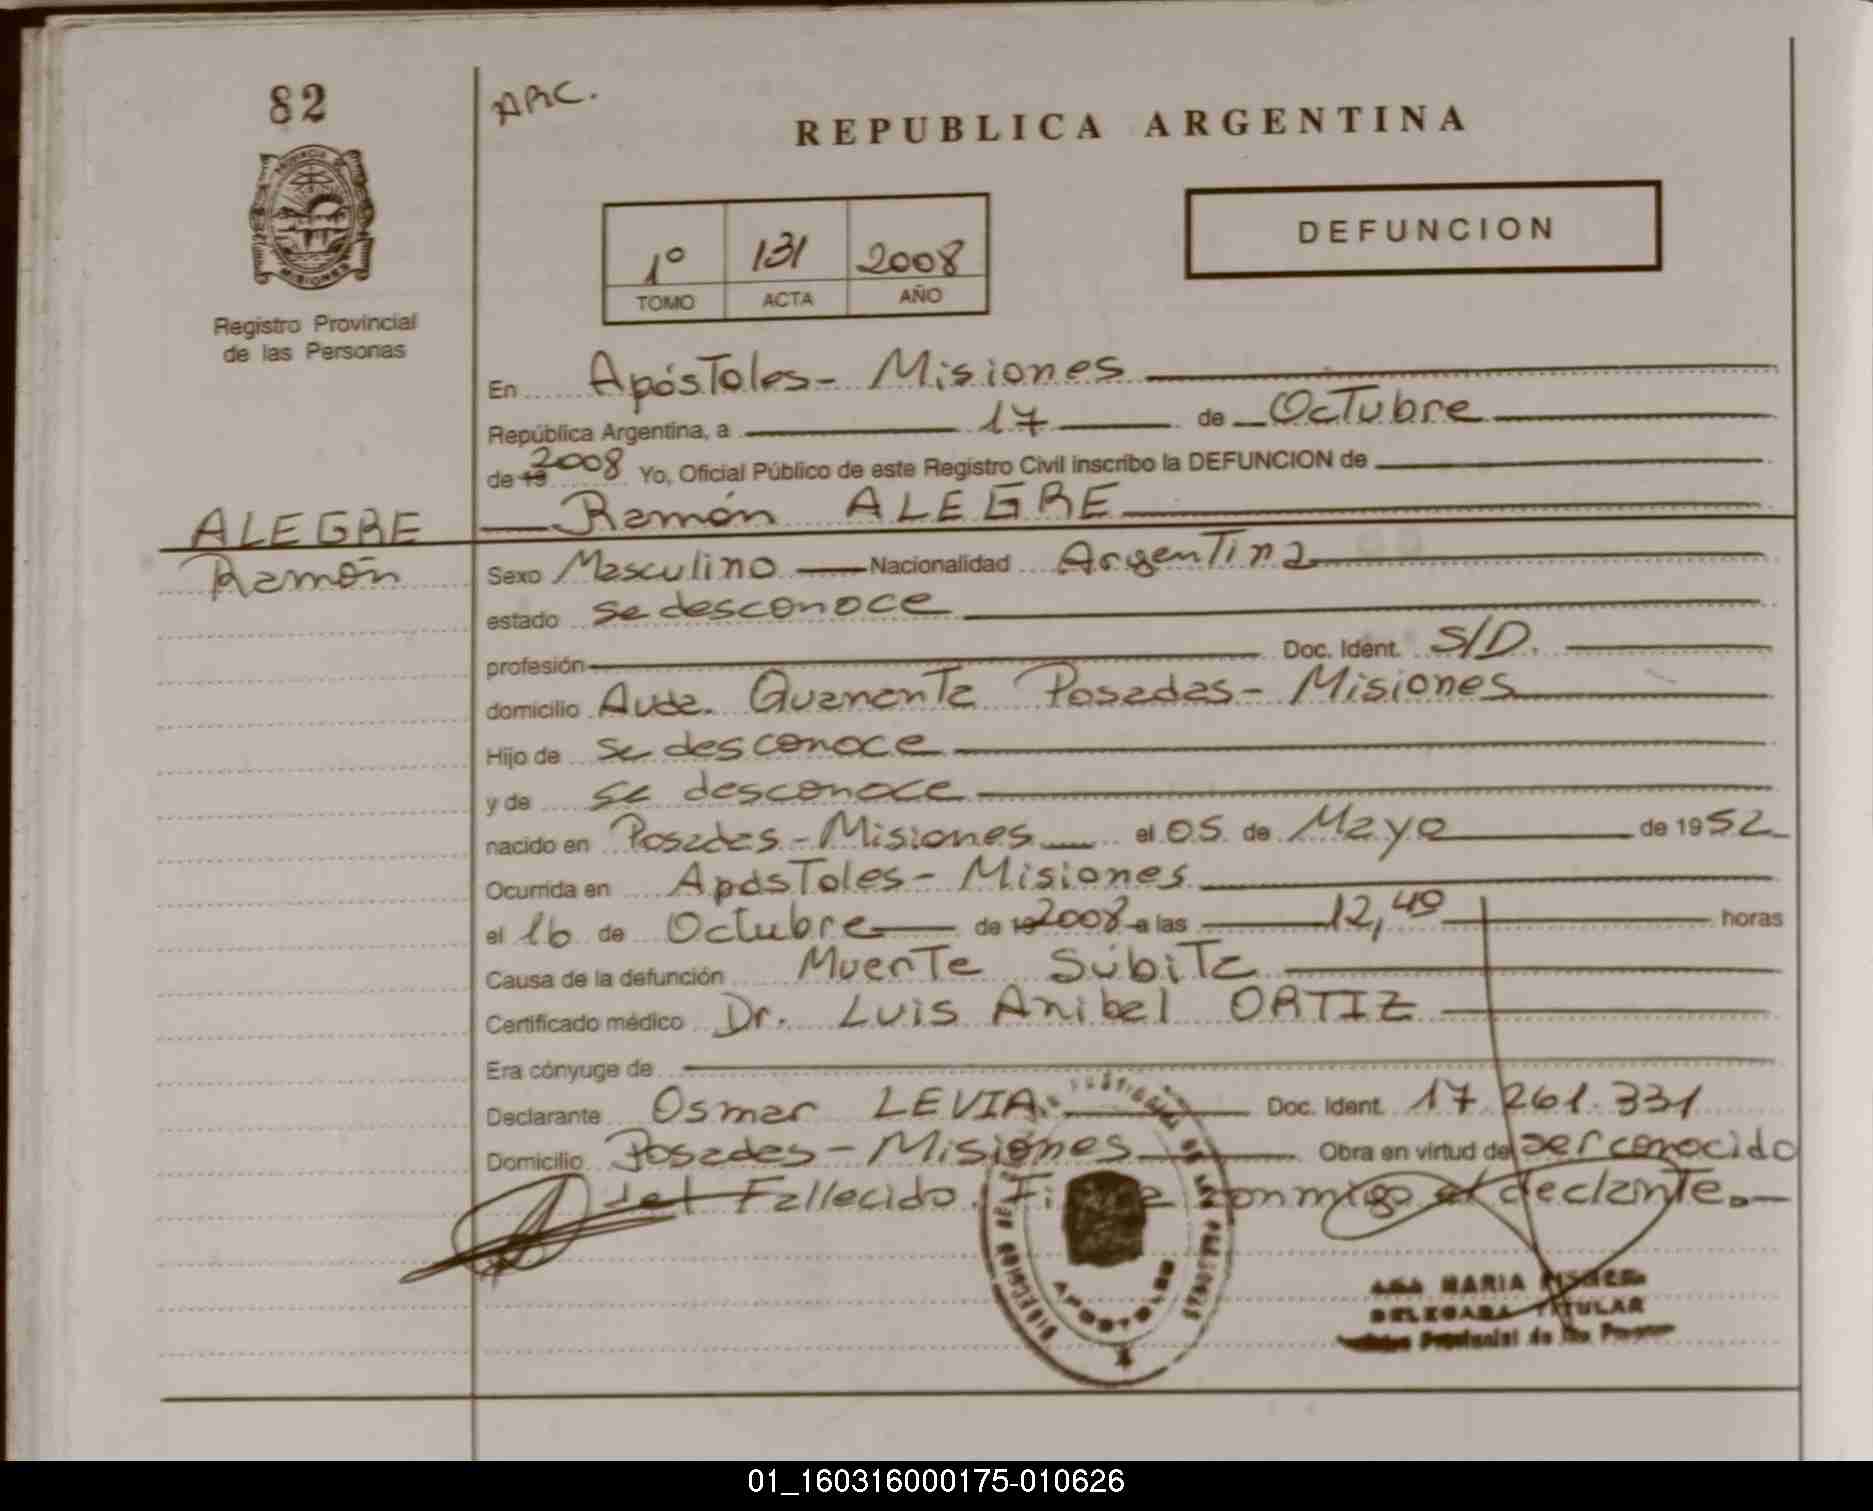 82
ARC.
REPUBLICA ARGENTINA
1º 131 2008
TOMO ACTA AÑO
DEFUNCION
PROVINCIA DE MISIONES
Registro Provincial
de las Personas
En Apóstoles - Misiones
República Argentina, a 17 de Octubre
de 19 2008 Yo, Oficial Público de este Registro Civil inscribo la DEFUNCION de
Ramón ALEGRE
ALEGRE
Ramón
Sexo Masculino Nacionalidad Argentina
estado se desconoce
profesión Doc. Ident. S/D.
domicilio Avda. Quaranta Posadas - Misiones
Hijo de se desconoce
y de se desconoce
nacido en Posadas - Misiones el 05 de Mayo de 1952
Ocurrida en Apóstoles - Misiones
el 16 de Octubre de 19 2008 a las 12,40 horas
Causa de la defunción Muerte Súbita
Certificado médico Dr. Luis Anibal ORTIZ
Era cónyuge de
Declarante Osmar LEVIA. Doc. Ident. 17.261.331
Domicilio Posadas - Misiones Obra en virtud de ser conocido
del Fallecido. conmigo el declante.
APOSTOLES
MARIA
DELEGADA TITULAR
Provincial de las
01_160316000175-010626